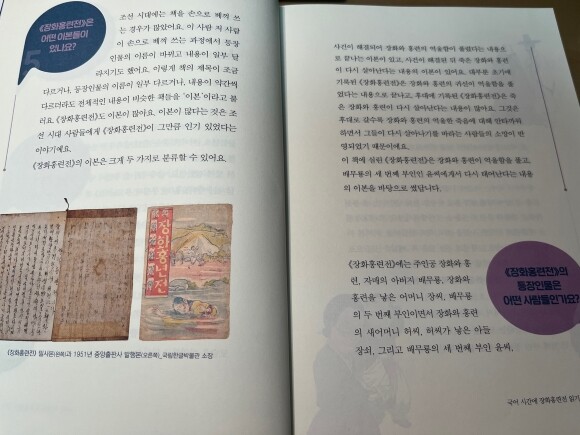 《장화홍련전》은
어떤 이본들이
있나요?
조선 시대에는 책을 손으로 베껴 쓰
는 경우가 많았어요. 이 사람 저 사람
이 손으로 베껴 쓰는 과정에서 등장
인물의 이름이 바뀌고 내용이 일부 달
라지기도 했어요. 이렇게 책의 제목이 조금
다르거나, 등장인물의 이름이 일부 다르거나, 내용이 약간씩
다르더라도 전체적인 내용이 비슷한 책들을 '이본'이라고 불
러요. 《장화홍련전》도 이본이 많아요. 이본이 많다는 것은 조
선 시대 사람들에게 《장화홍련전》이 그만큼 인기 있었다는
이야기예요.
《장화홍련전》의 이본은 크게 두 가지로 분류할 수 있어요.
장화홍년전
《장화홍련전》 필사본(왼쪽)과 1951년 중앙출판사 발행본(오른쪽)_국립한글박물관 소장
사건이 해결되어 장화와 홍련의 억울함이 풀렸다는 내용으
로 끝나는 이본이 있고, 사건이 해결된 뒤 죽은 장화와 홍련
이 다시 살아난다는 내용의 이본이 있어요. 대부분 초기에
기록된 《장화홍련전》은 장화와 홍련의 귀신이 억울함을 풀
었다는 내용으로 끝나고, 후대에 기록된 《장화홍련전》은 죽
은 장화와 홍련이 다시 살아난다는 내용이 많아요. 그것은
후대로 갈수록 장화와 홍련의 억울한 죽음에 대해 안타까워
하면서 그들이 다시 살아나기를 바라는 사람들의 소망이 반
영되었기 때문이에요.
이 책에 실린 《장화홍련전》은 장화와 홍련이 억울함을 풀고,
배무룡의 세 번째 부인인 윤씨에게서 다시 태어난다는 내용
의 이본을 바탕으로 썼답니다.
《장화홍련전》의
등장인물은
어떤 사람들인가요?
《장화홍련전》에는 주인공 장화와 홍
련, 자매의 아버지 배무룡, 장화와
홍련을 낳은 어머니 장씨, 배무룡
의 두 번째 부인이면서 장화와 홍련
의 새어머니 허씨, 허씨가 낳은 아들
장쇠, 그리고 배무룡의 세 번째 부인 윤씨,
국어 시간에 장화홍련전 읽기